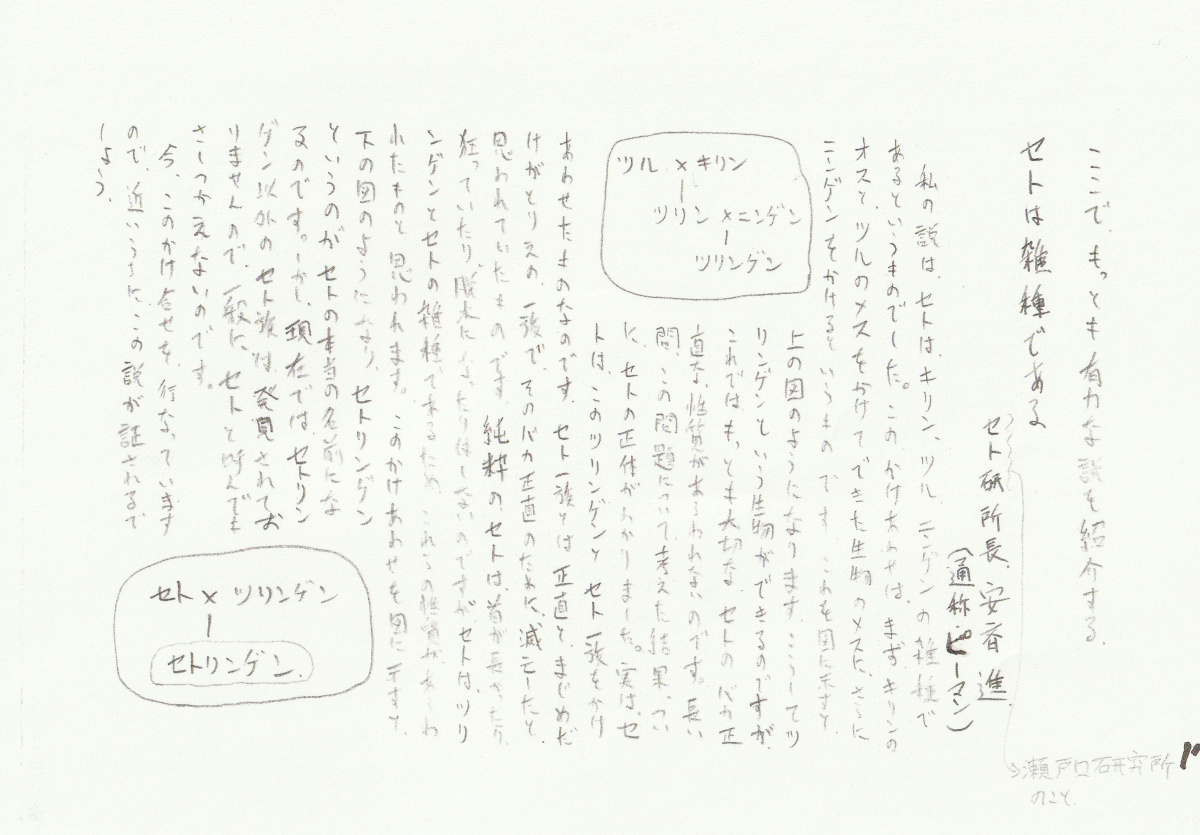 ここで、もっとも有力な説を紹介する。
セトは雑種である
セト研所長、安斉進
（通称・ピーマン）
→瀬戸口研究所
のこと。
私の説は、セトは、キリン、ツル、ニンゲンの雑種で
あるというものでした。このかけあわせは、まず、キリンの
オスと、ツルのメスをかけてできた生物のメスに、さらに
ニンゲンをかけるというものです。これを図に示すと、
ツル × キリン
ツリン × ニンゲン
ツリンゲン
上の図のようになります。こうしてツ
リンゲンという生物ができるのですが、
これではもっとも大切な、セトのバカ正
直な、性質があらわれないのです。長い
間、この問題について考えた結果、つい
に、セトの正体がわかりました。実は、セ
トは、このツリンゲンと セト一族をかけ
あわせたものなのです。セト一族とは、正直と、まじめだ
けがとりえの、一族で、そのバカ正直のために、滅亡したと、
思われていたものです。純粋のセトは、首が長かったり、
狂っていたり、脱水になったりはしないのですが、セトは、ツリ
ンゲンとセトの雑種であるため、これらの性質が、あらわ
れたものと思われます。このかけあわせを図に示すと、
下の図のようになり、セトリンゲン
というのがセトの本当の名前にな
るのです。しかし、現在では、セトリン
ゲン以外のセト族は、発見されてお
りませんので、一般に、セトと呼んでも
さしつかえないのです。
今、このかけ合せを、行なっています
ので、近いうちに、この説が証されるで
しょう。
セト × ツリンゲン
セトリンゲン.